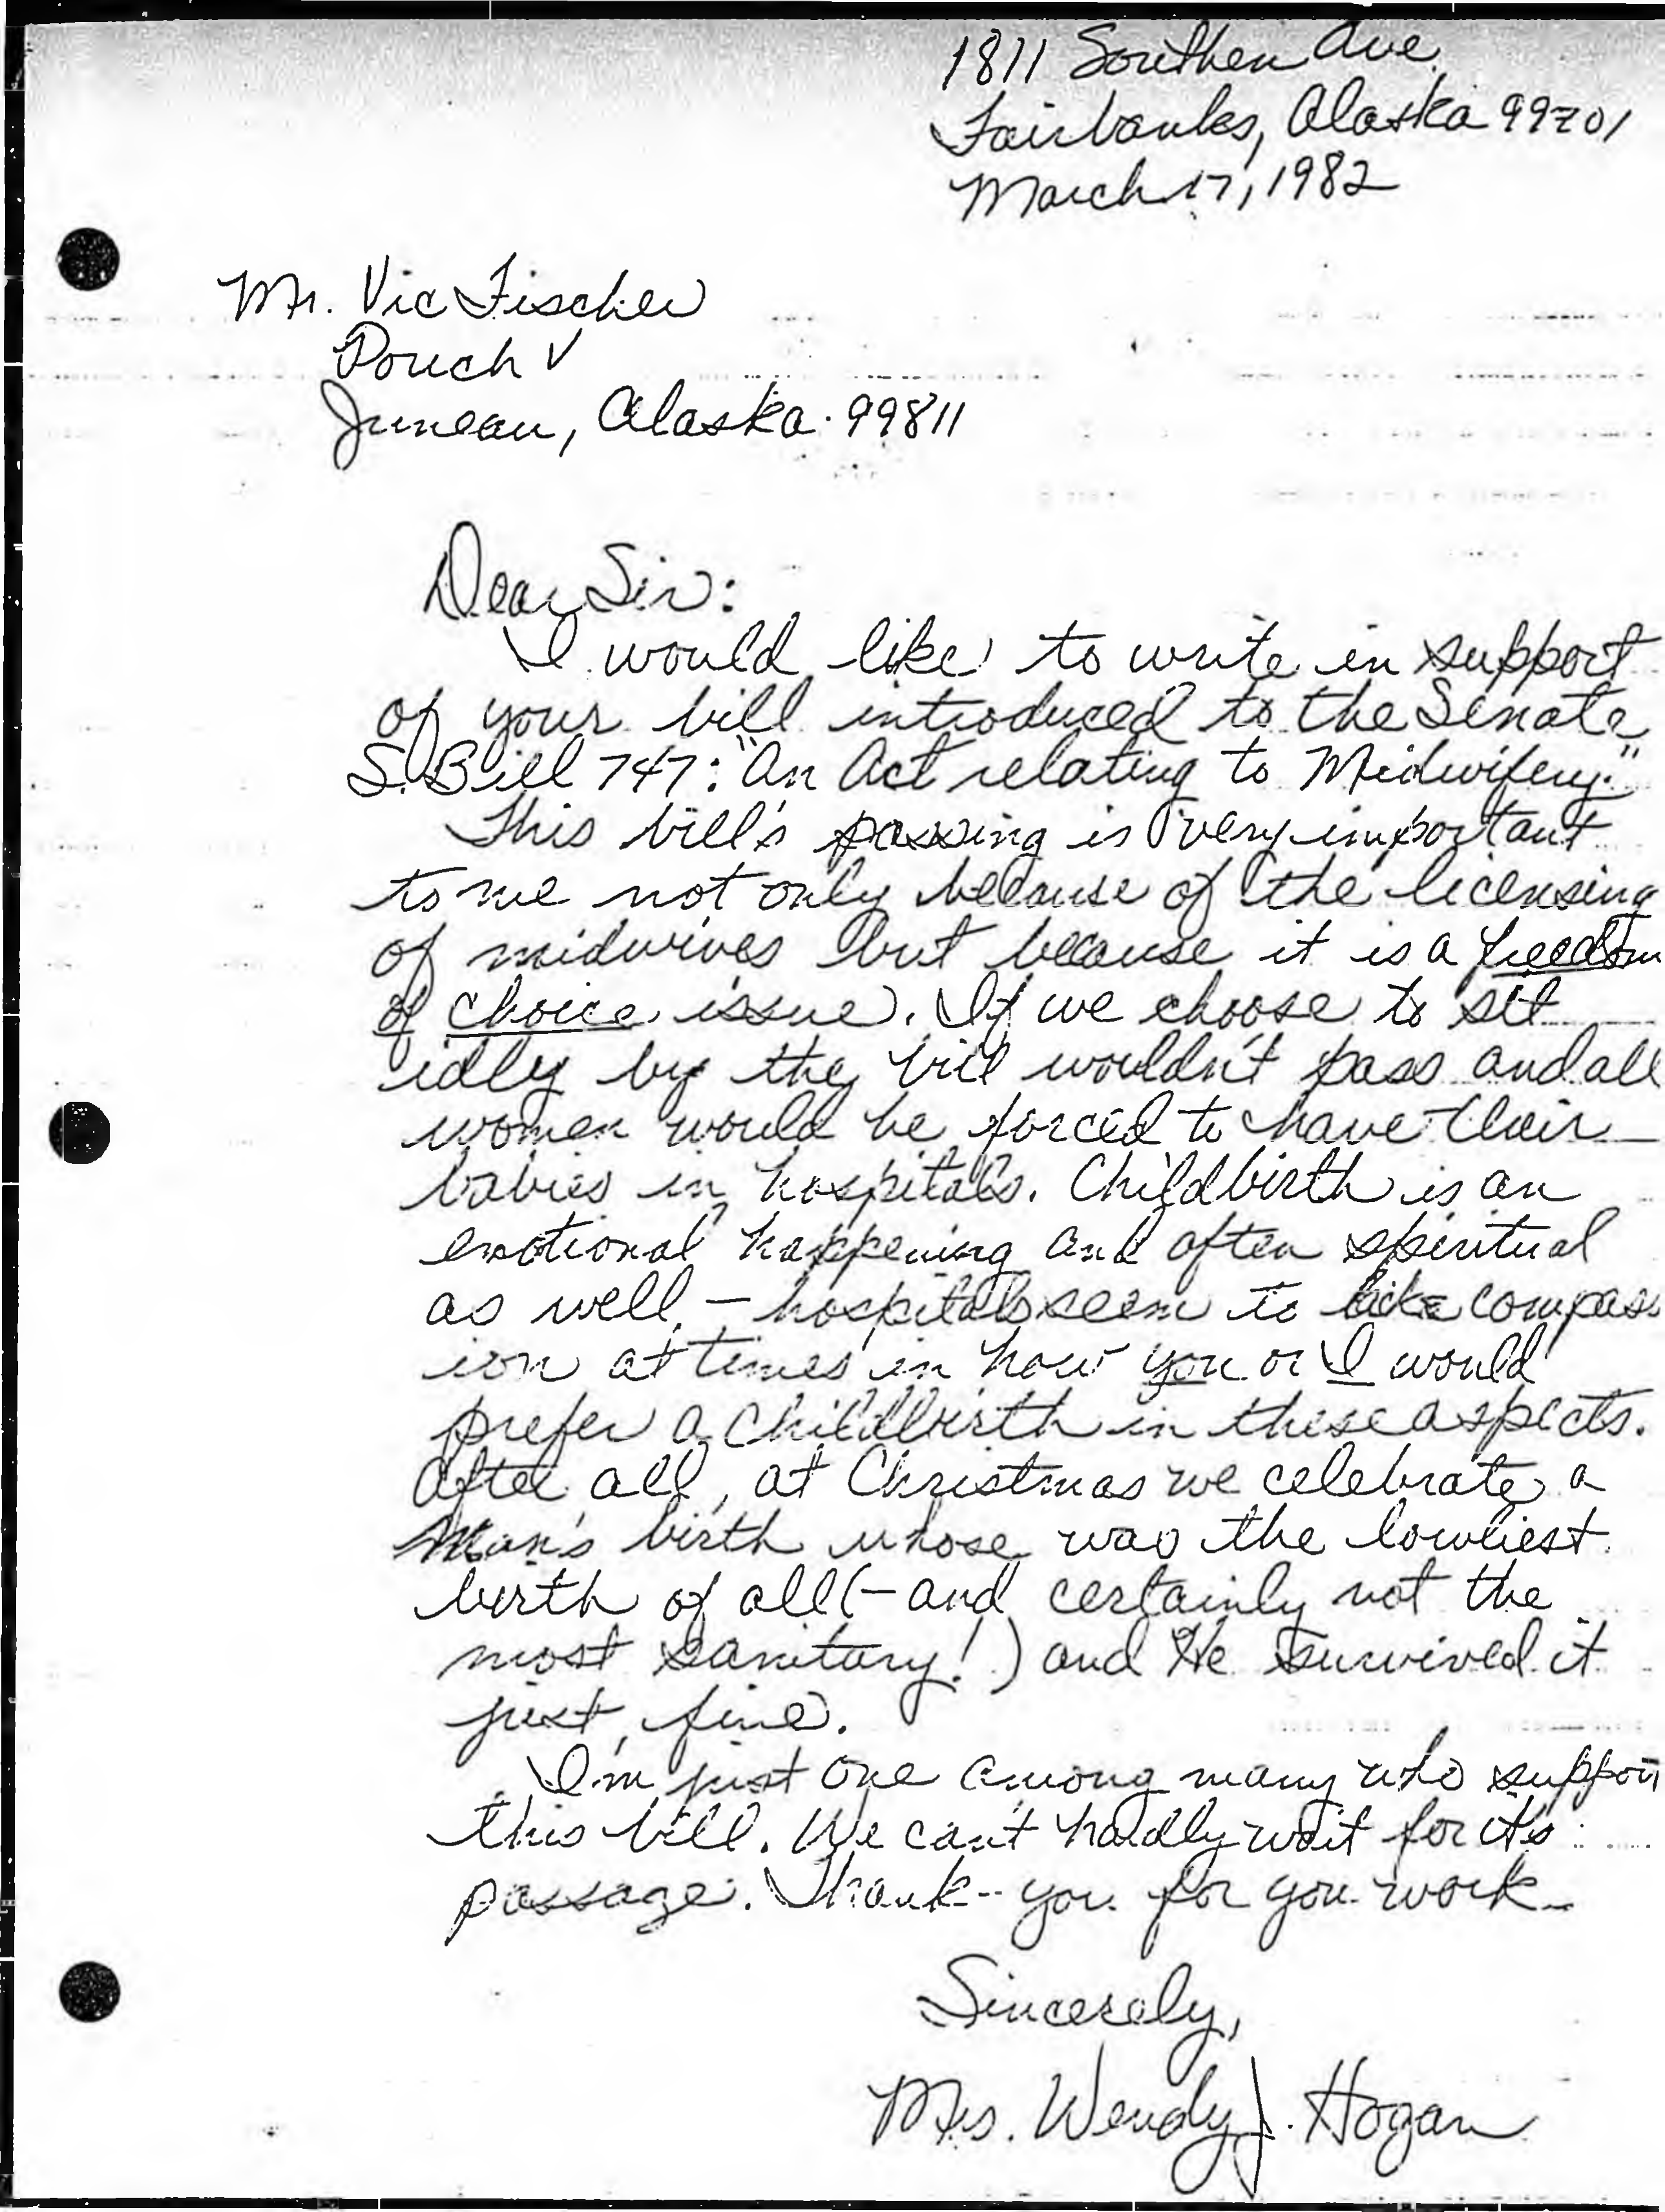 1811 Southern Ave.
Fairbanks, Alaska 99701
March 17, 1982
Mr. Vic Fischer
Pouch V
Juneau, Alaska 99811
Dear Sir:
I would like to write in support
of your bill introduced to the Senate
S. Bill 747: "An Act relating to Midwifery."
This bill's passing is very important
to me not only because of the licensing
of midwives but because it is a freedom
of choice issue. If we choose to sit
idly by the bill wouldn't pass and all
women would be forced to have their
babies in hospitals. Childbirth is an
emotional happening and often spiritual
as well - hospitals seem to lack compass
ion at times in how you or I would
prefer a childbirth in these aspects.
After all, at Christmas we celebrate a
Man's birth whose was the lowliest
birth of all (- and certainly not the
most sanitary!) and He survived it
just fine.
I'm just one among many who support
this bill. We can't hardly wait for it's
passage. Thank-you for you work-
Sincerely,
Mrs. Wendy J. Hogan